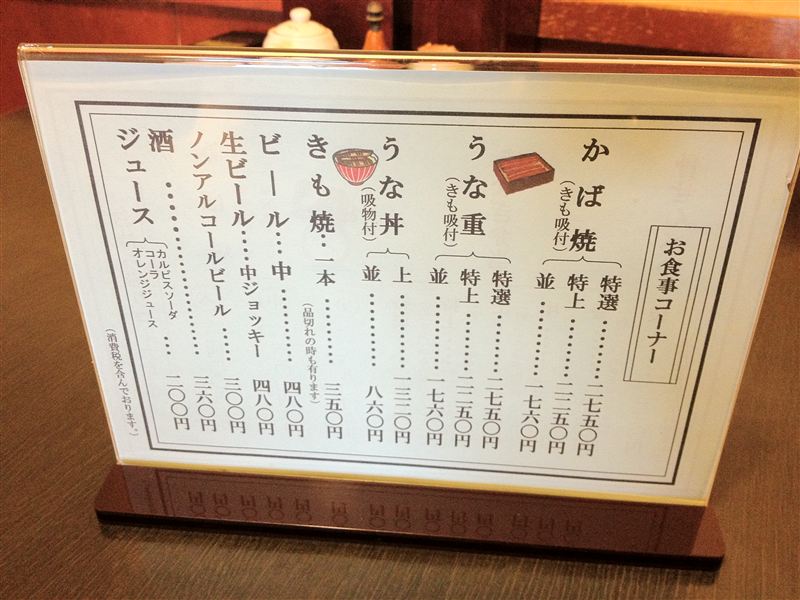 お食事コーナー
かば焼(きも吸付)
特選………二七五〇円
特上………二二五〇円
並………一七六〇円
うな重(きも吸付)
特選………二七五〇円
特上………二二五〇円
並………一七六〇円
うな丼(吸物付)
上………一三二〇円
並………八六〇円
きも焼…一本………三五〇円
(品切れの時も有ります)
ビール…中………四八〇円
生ビール…中ジョッキー 四八〇円
ノンアルコールビール……三〇〇円
酒………………三六〇円
ジュース
カルピスソーダ
コーラ
オレンジジュース
…二〇〇円
(消費税を含んでおります。)